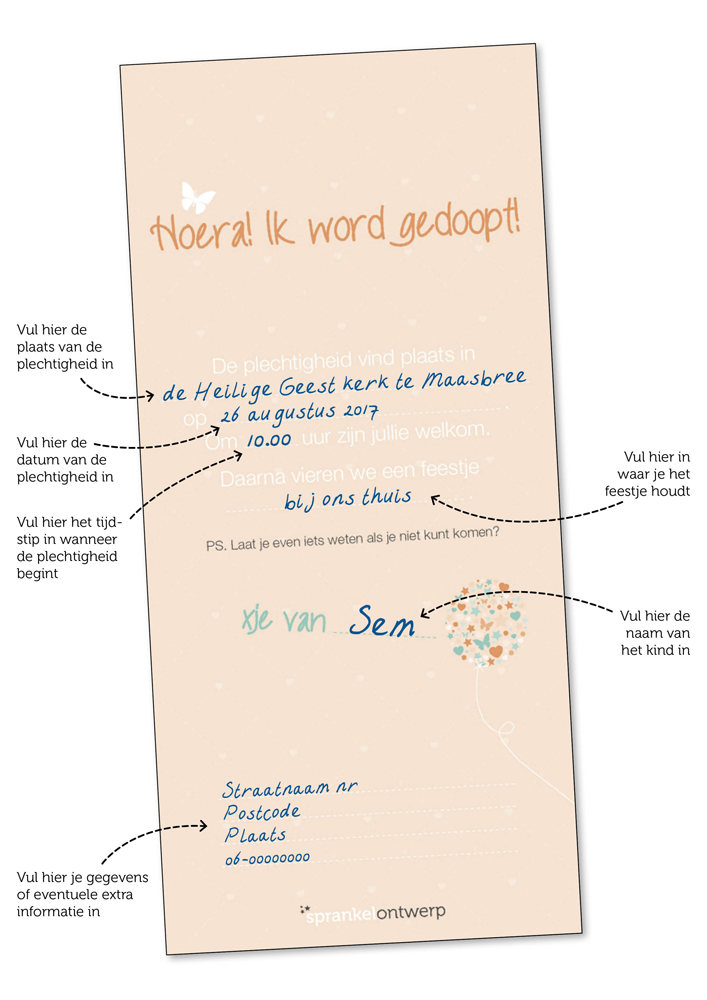 Hoera! Ik word gedoopt!
Vul hier de
plaats van de
plechtigheid in
De plechtigheid vind plaats in
de Heilige Geest kerk te Maasbree
op 26 augustus 2017
Vul hier de
datum van de
plechtigheid in
Om 10.00 uur zijn jullie welkom.
Vul hier het tijd-
stip in wanneer
de plechtigheid
begint
Daarna vieren we een feestje
bij ons thuis
Vul hier in
waar je het
feestje houdt
PS. Laat je even iets weten als je niet kunt komen?
xje van Sem
Vul hier de
naam van
het kind in
Straatnaam nr
Postcode
Plaats
06-00000000
Vul hier je gegevens
of eventuele extra
informatie in
sprankelontwerp